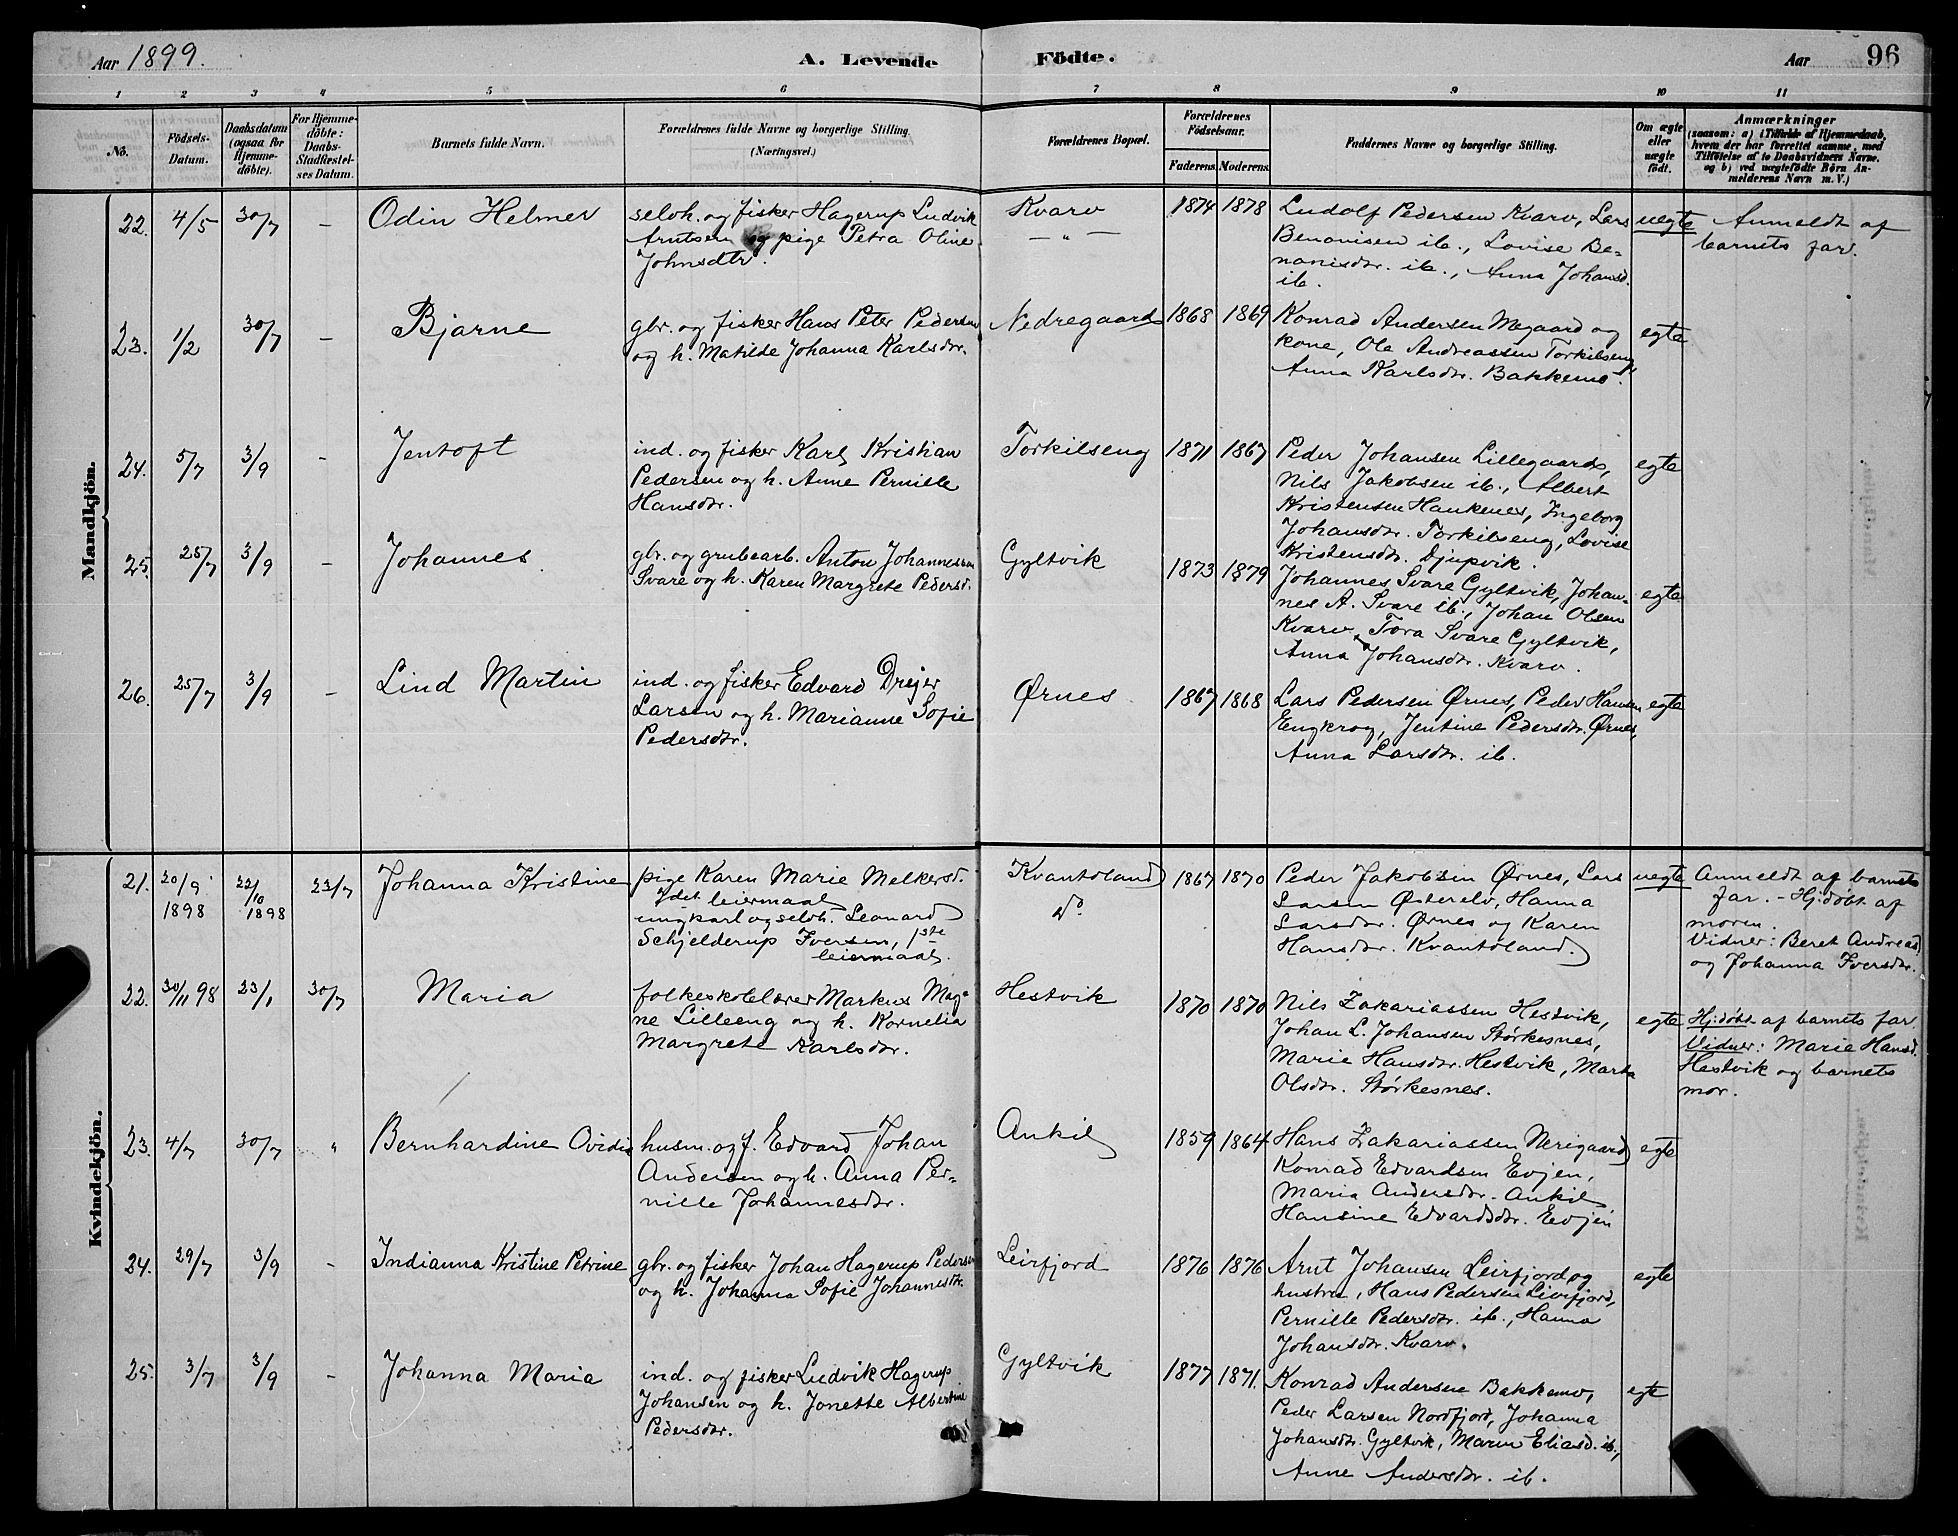 Aar 1899.
A. Levende Födte.
Aar
96
1 2 3 4 5 6 7 8 9 10 11
No.
Födsels-Datum.
Daabsdatum (ogsaa for Hjemme-döbte).
For Hjemme-döbte: Daabs-Stadfæstel-ses Datum.
Barnets fulde Navn.
Forældrenes fulde Navne og borgerlige Stilling.
(Næringsvei.)
Forældrenes Bopæl.
Forældrenes Födselsaar.
Faderens. Moderens.
Faddernes Navne og borgerlige Stilling.
Om ægte eller uægte födt.
Anmærkninger
(saasom: a) i Tilfælde af Hjemmedaab, hvem der har forrettet samme, med Tilföielse af to Daabsvidners Navne. og b) ved uægtefödte Börn An-melderens Navn m. V.)
Mandkjön.
22. 4/5 30/7 - Odin Helmer
selvh. og fisker Hagerup Ludvik
Arntsen og pige Petra Oline
Johnsdtr.
Kvarv
— " —
1874 1878
Ludolf Pedersen Kvarv, Lars
Benonisen ib., Lovise Be-
nonisdtr. ib., Anna Johansd.
ib.
uegte
Anmeldt af
barnets far.
23. 1/2 30/7 - Bjarne
gbr. og fisker Hans Peter Pedersen
og h. Matilde Johanna Karlsdtr.
Nedregaard
1868 1869
Konrad Andersen Megaard og
kone, Ole Andreassen Torkilseng,
Anna Karlsdtr. Bakkemo.
egte
24. 5/7 3/9 - Jentoft
ind. og fisker Karl Kristian
Pedersen og h. Anne Pernille
Hansdtr.
Torkilseng
1871 1867
Peder Johansen Lillegaard,
Nils Jakobsen ib., Albert
Kristensen Haukenes, Ingeborg
Johansdtr. Torkilseng, Lovise
Kristensdtr. Djupvik.
egte
25. 25/7 3/9 - Johannes
gbr. og grubearb. Anton Johannessen
Svare og h. Karen Margrete Pedersd.
Gyltvik
1873 1879
Johannes Svare Gyltvik, Johan-
nes A. Svare ib., Johan Olsen
Kvarv, Tora Svare Gyltvik,
Anna Johansdtr. Kvarv.
egte
26. 25/7 3/9 - Lind Martin
ind. og fisker Edvard Drejer
Larsen og h. Marianne Sofie
Pedersdtr.
Ørnes
1867 1868
Lars Pedersen Ørnes, Peder Hansen
Engkrog, Jentine Pedersdtr. Ørnes,
Anna Larsdtr. ib.
egte
Kvindekjön.
21. 20/9 1898 22/10 1898 23/7 Johanna Kristine
pige Karen Marie Melkersd.
1det leiermaal
ungkarl og selvh. Leonard
Schjelderup Iversen, 1ste
leiermaal.
Kvantoland
do.
1867 1870
Peder Jakobsen Ørnes, Lars
Larsen Østerelv, Hanna
Larsdtr. Ørnes og Karen
Hansdtr. Kvantoland
uegte
Anmeldt af barnets
far. - Hj.døbt af
moren.
Vidner: Beret Andreasd
og Johanna Iversdtr.
22. 30/11 98 23/1 30/7 Maria
folkeskolelærer Markus Mag-
ne Lilleeng og h. Kornelia
Margrete Karlsdtr.
Hestvik
1870 1870
Nils Zakariassen Hestvik,
Johan L. Johansen Størkesnes,
Marie Hansdtr. Hestvik, Marta
Olsdtr. Størkesnes.
egte
Hj.døbt af barnets far
Vidner: Marie Hansd.
Hestvik og barnets
mor.
23. 4/7 30/7 " Bernhardine Ovidia
husm. og f. Edvard Johan
Andersen og h. Anna Per-
nille Johannesdtr.
Ankil
1859 1864
Hans Zakariassen Nerigaard
Konrad Edvardsen Evjen,
Maria Andersdtr. Ankil
Hansine Edvardsdtr. Evjen
egte
24. 29/7 3/9 - Indianna Kristine Petrine
gbr. og fisker Johan Hagerup Pedersen
og h. Johanna Sofie Johannesdtr.
Leirfjord
1876 1876
Arnt Johansen Leirfjord og
hustru, Hans Pedersen Leirfjord,
Pernille Pedersdtr. ib., Hanna
Johansdtr. Kvarv.
egte
25. 3/7 3/9 - Johanna Maria
ind. og fisker Ludvik Hagerup
Johansen og h. Jonette Albertine
Pedersdtr.
Gyltvik
1877 1871.
Konrad Andersen Bakkemo,
Peder Larsen Nordfjord, Johanna
Johansdtr. Gyltvik, Maren Eliasd. ib.,
Anne Andersdtr. ib.
egte